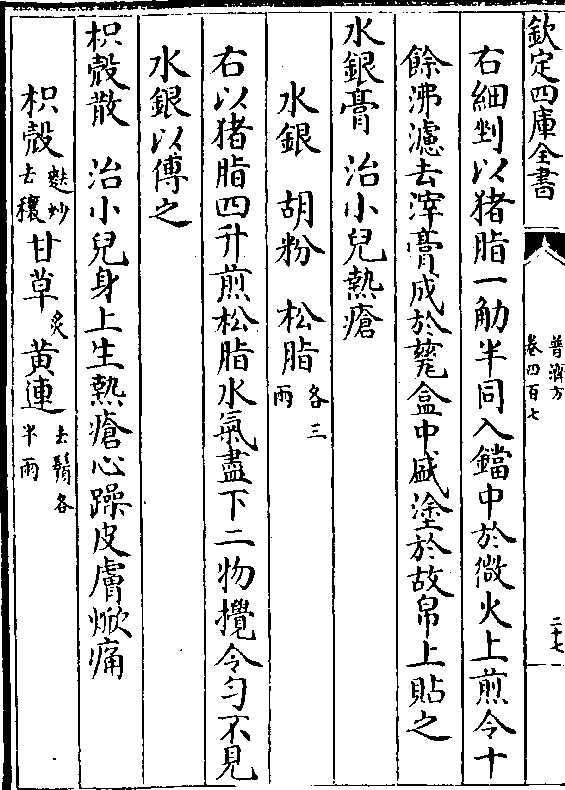 欽定四庫全書
普濟方
卷四百七
二十七
右細剉以猪脂一觔半同入鐺中於微火上煎令十
餘沸濾去滓膏成於甆盒中盛塗於故帛上貼之
水銀膏 治小兒熱瘡
水銀 胡粉 松脂各三兩
右以猪脂四升煎松脂水氣盡下二物攪令勻不見
水銀以傅之
枳殼散 治小兒身上生熱瘡心躁皮膚焮痛
枳殼麩炒去穰 甘草炙 黄連去鬚各半兩